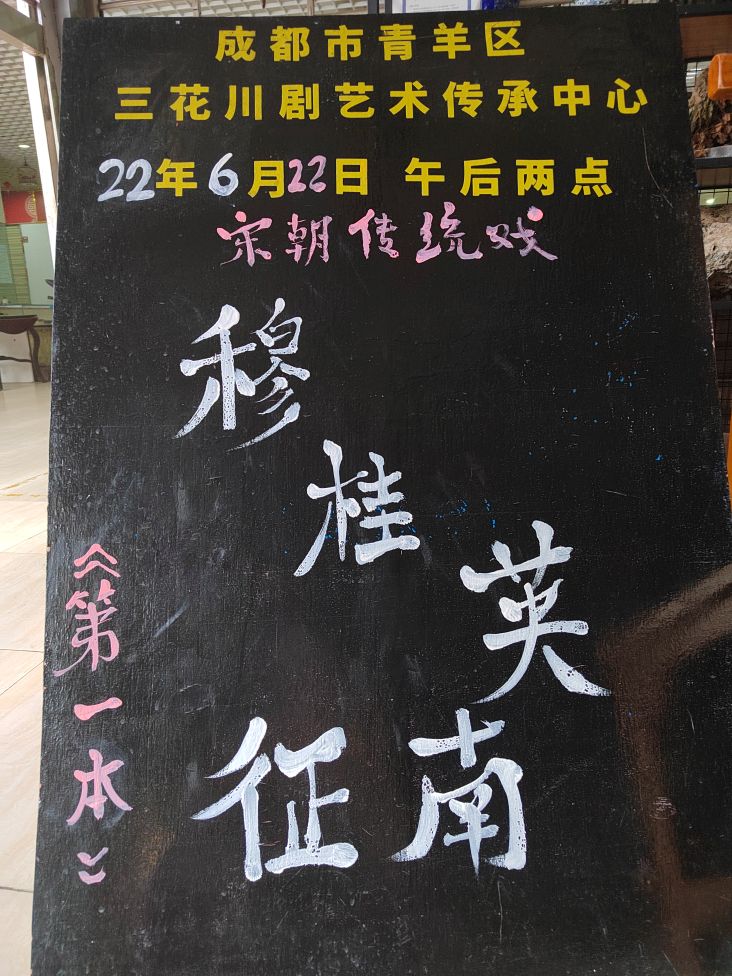 成都市青羊区
三花川剧艺术传承中心
22年6月22日 午后两点
宋朝传统戏
穆桂英
征南
《第一本》